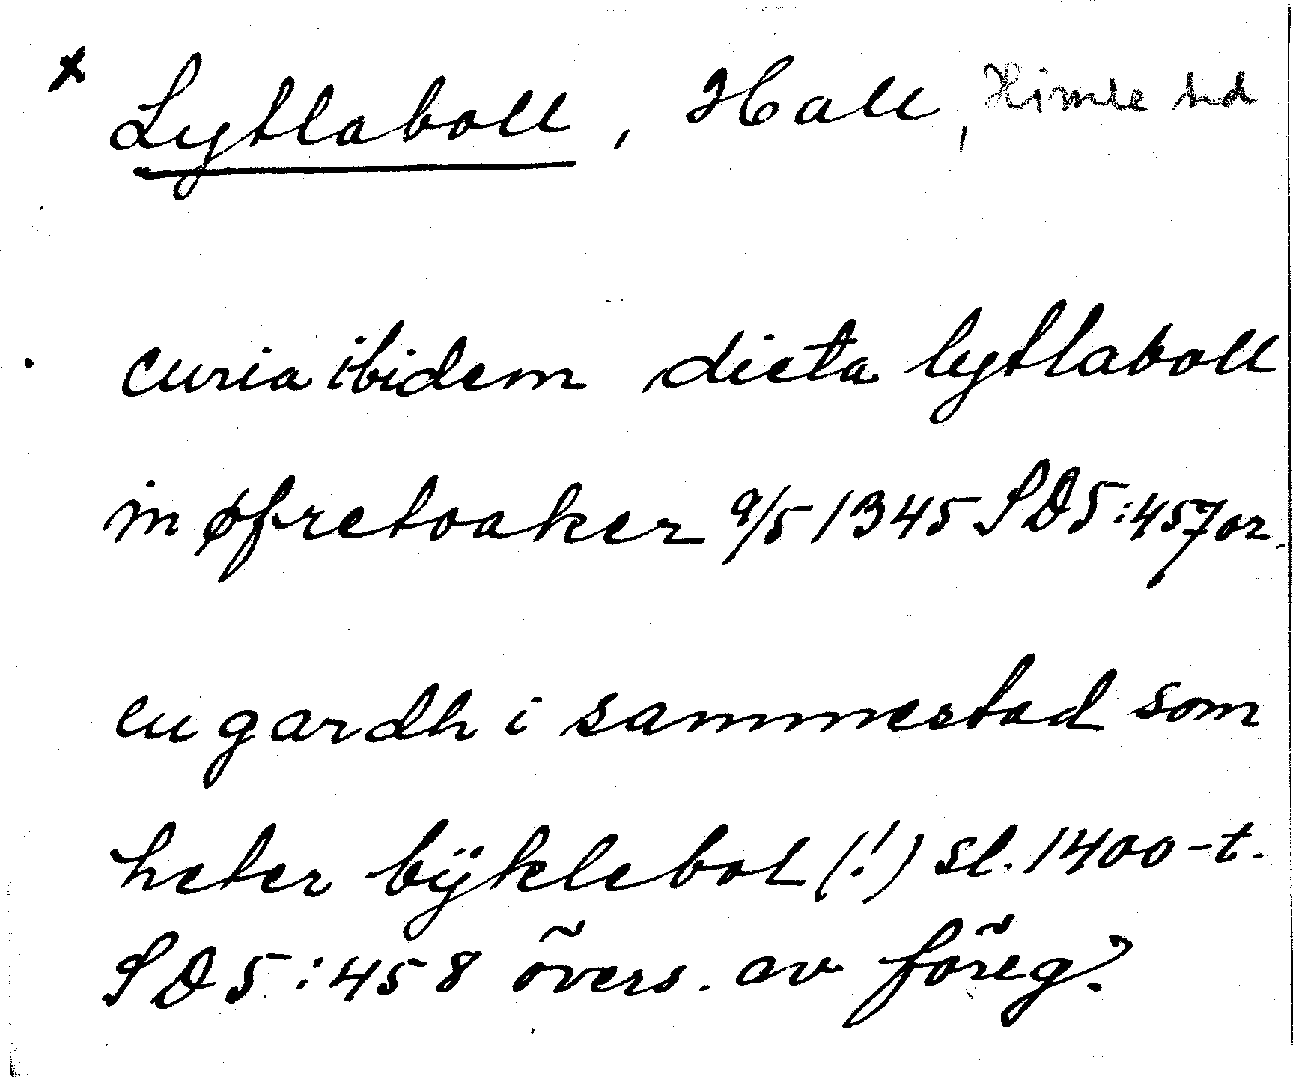 x Lytlaboll, Hall, Himle hd
curia ibidem dicta lytlaboll
in øfretoaker 9/5 1345 SD 5:457 or.
en gardh i sammestad som
heter bÿklebol (!) sl. 1400-t.
SD 5:458 övers. av föreg?